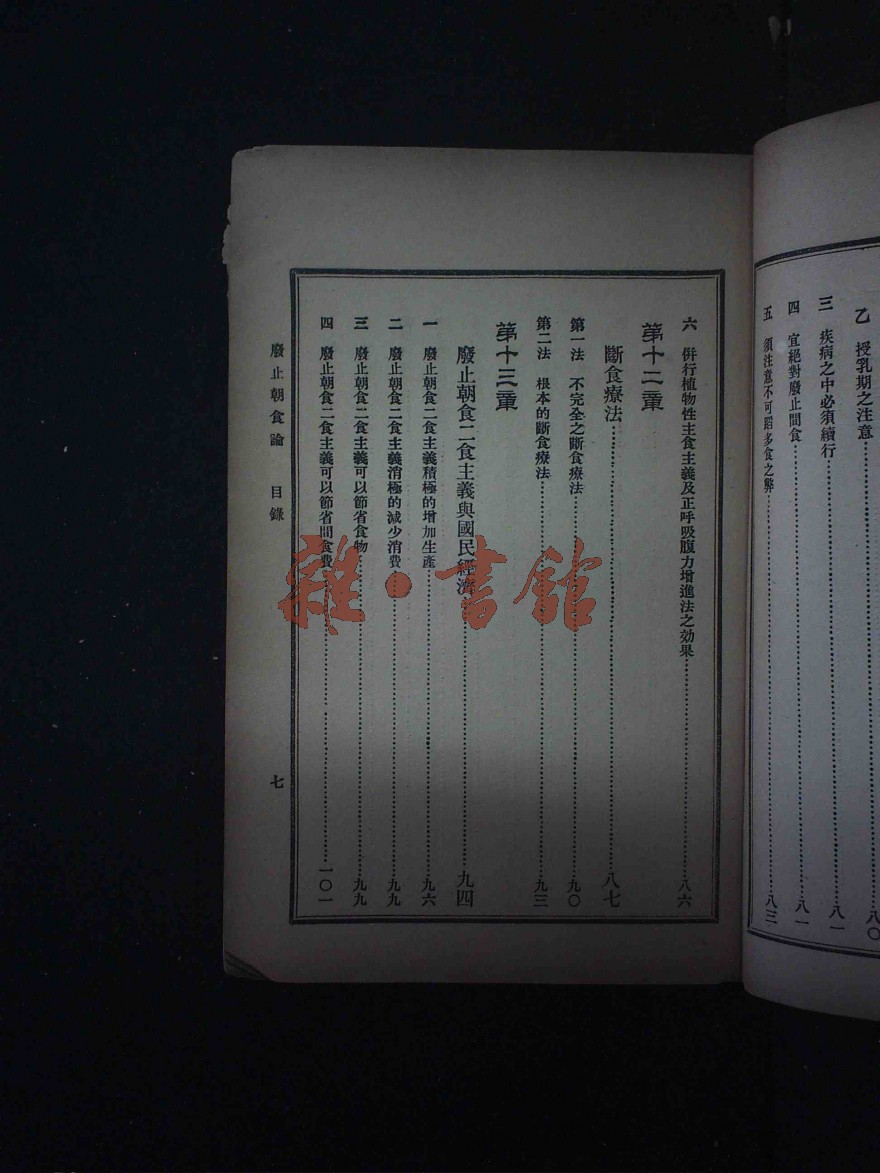 乙　授乳期之注意………八〇
三　疾病之中必須續行………八一
四　宜絕對廢止間食………八一
五　須注意不可蹈多食之弊………八三
六　併行植物性主食主義及正呼吸腹力增進法之効果………八六
第十二章
斷食療法………八七
第一法　不完全之斷食療法………九〇
第二法　根本的斷食療法………九三
第十三章
廢止朝食二食主義與國民經濟………九四
一　廢止朝食二食主義積極的增加生產………九六
二　廢止朝食二食主義消極的減少消費………九九
三　廢止朝食二食主義可以節省食物………九九
四　廢止朝食二食主義可以節省間食費………一〇一
廢止朝食論　目錄
七
雜·書館